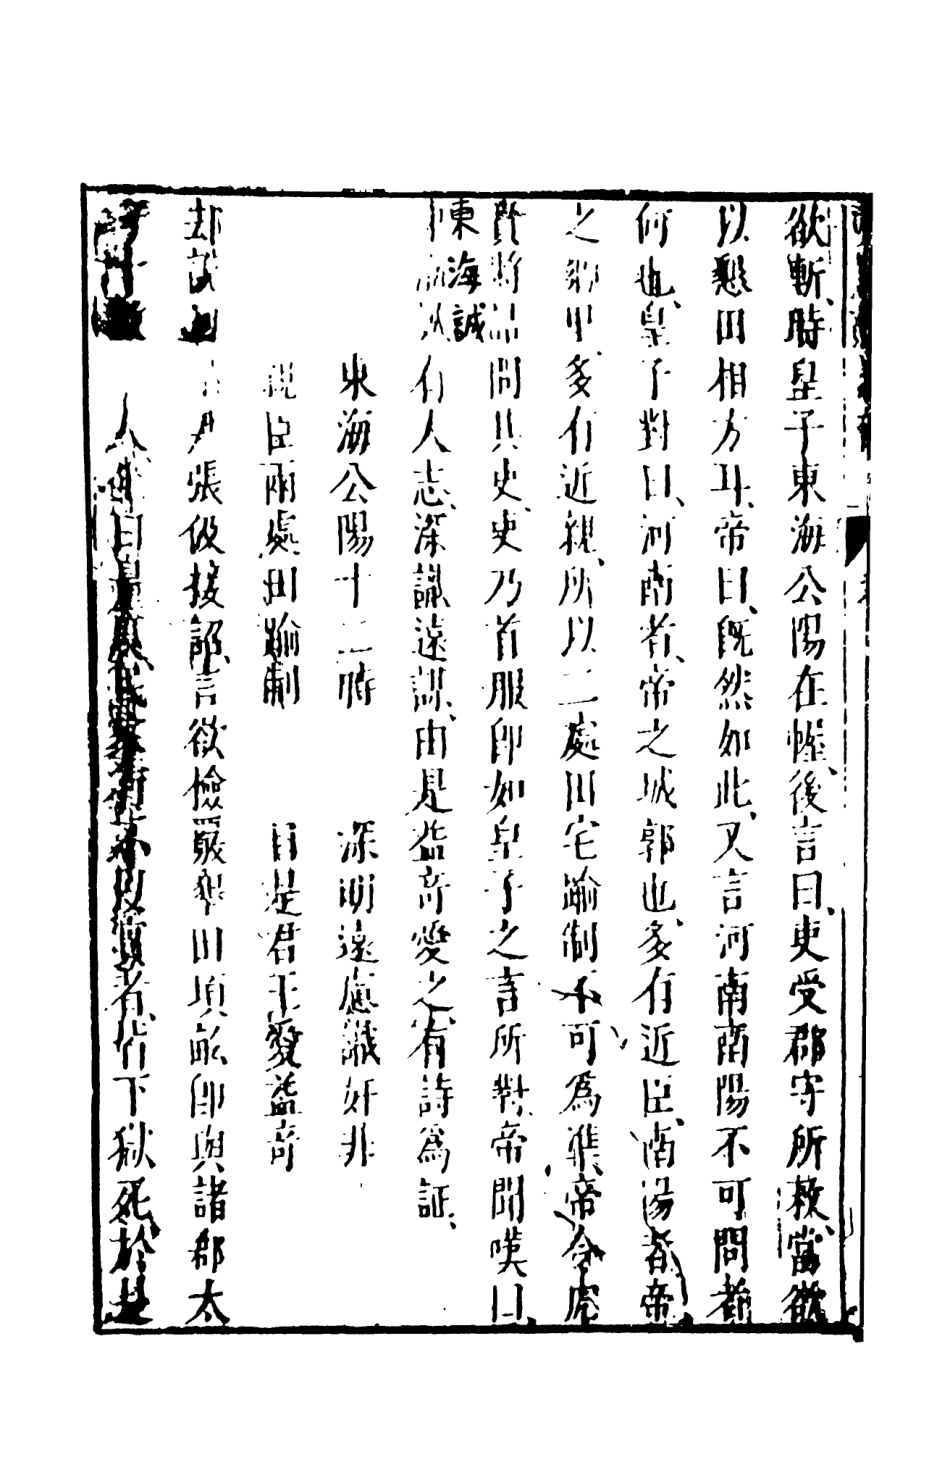 欲斬時皇子東海公陽在幄後言曰吏受郡守所敕當欲
以懇田相方耳帝曰既然如此又言河南南陽不可問者
何也皇子對曰河南者帝之城郭也多有近臣南陽者帝
之鄉里多有近親所以二處田宅踰制不可為準帝令虎
賁將詰問其吏吏乃首服即如皇子之言所對帝聞嘆曰
東海誠
有人志深識遠謀由是益奇愛之有詩為証
東海公陽十二時　深明遠慮識奸非
親臣兩處田踰制　自是君王愛益奇
却說　尹張伋接詔言欲檢覈墾田項畝即與諸郡太
守十數人　曰　不以實者皆下獄死於是